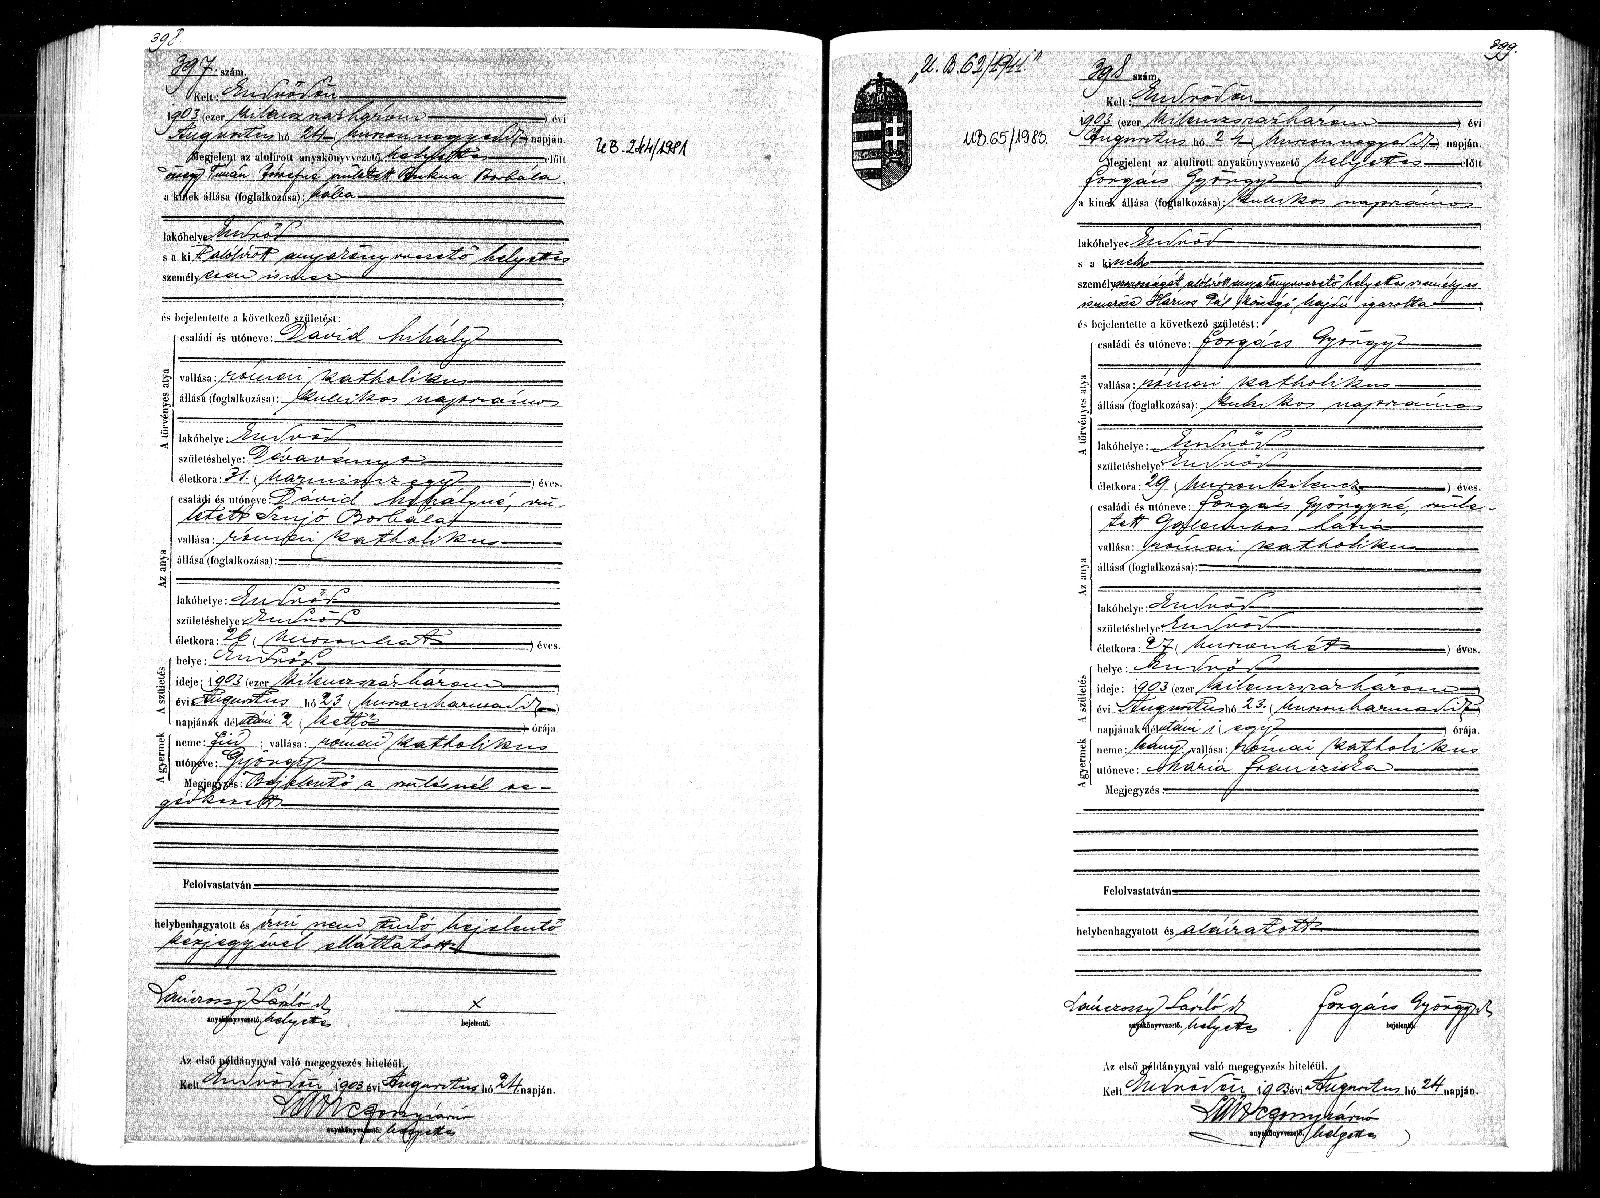 398.
397. szám
Kelt: Endrődön
1903 (ezer kilenczszázhárom) évi
Augusztus hó 24 (huszonnegyedik) napján.
Megjelent az alulirott anyakönyvvezető helyettes előtt
özv Született Borbála
a kinek állása (foglalkozása): bába
lakóhelye: Endrőd
s a kit alólírott anyakönyvvezető helyettes
személyesen ismer
és bejelentette a következő születést:
A törvényes atya
családi és utóneve: Dávid Mihály
vallása: római katholikus
állása (foglalkozása): kubikos napszámos
lakóhelye: Endrőd
születéshelye: Dévaványa
életkora: 31 (harminczegy) éves.
Az anya
családi és utóneve: Dávid Mihályné, szü-
letett Szujó Borbála
vallása: római katholikus
állása (foglalkozása):
lakóhelye: Endrőd
születéshelye: Endrőd
életkora: 26 (huszonhat) éves.
A születés
helye: Endrőd
ideje: 1903 (ezer kilenczszázhárom)
évi Augusztus hó 23 (huszonharmadik)
napjának délutáni 2 (kettő) órája
A gyermek
neme: fiú; vallása: római katholikus
utóneve: György
Megjegyzés: Bejelentő a szülésnél se-
gédkezett
Felolvastatván
helybenhagyatott és írni nem tudó bejelentő
kézjegyével elláttatott
László
anyakönyvvezető helyettes
x
bejelentő.
Az első példánynyal való megegyezés hiteléül.
Kelt Endrődön 1903 évi Augusztus hó 24 napján.
anyakönyvvezető helyettes
UB. 244/1981
399.
"U. B. 62/1941"
UB 65/1983.
398 szám
Kelt: Endrődön
1903 (ezer kilenczszázhárom) évi
Augusztus hó 24 (huszonnegyedik) napján.
Megjelent az alulirott anyakönyvvezető helyettes előtt
Forgács György
a kinek állása (foglalkozása): kubikos napszámos
lakóhelye: Endrőd
s a kinek
személyazonosságát, alólírott anyakönyvvezető helyettes személyesen
ismerős Harnos Pál községi hajdú igazolta
és bejelentette a következő születést:
A törvényes atya
családi és utóneve: Forgács György
vallása: római katholikus
állása (foglalkozása): kubikos napszámos
lakóhelye: Endrőd
születéshelye: Endrőd
életkora: 29 (huszonkilencz) éves.
Az anya
családi és utóneve: Forgács Györgyné, szüle-
tett
vallása: római katholikus
állása (foglalkozása):
lakóhelye: Endrőd
születéshelye: Endrőd
életkora: 27 (huszonhét) éves.
A születés
helye: Endrőd
ideje: 1903 (ezer kilenczszázhárom)
évi Augusztus hó 23. (huszonharmadik)
napjának délutáni 1 (egy) órája.
A gyermek
neme: leány; vallása: római katholikus
utóneve: Mária Francziska
Megjegyzés:
Felolvastatván
helybenhagyatott és aláíratott
László
anyakönyvvezető, helyettes
Forgács György
bejelentő.
Az első példánynyal való megegyezés hiteléül.
Kelt Endrődön 1903 évi Augusztus hó 24 napján.
anyakönyvvezető, helyettes